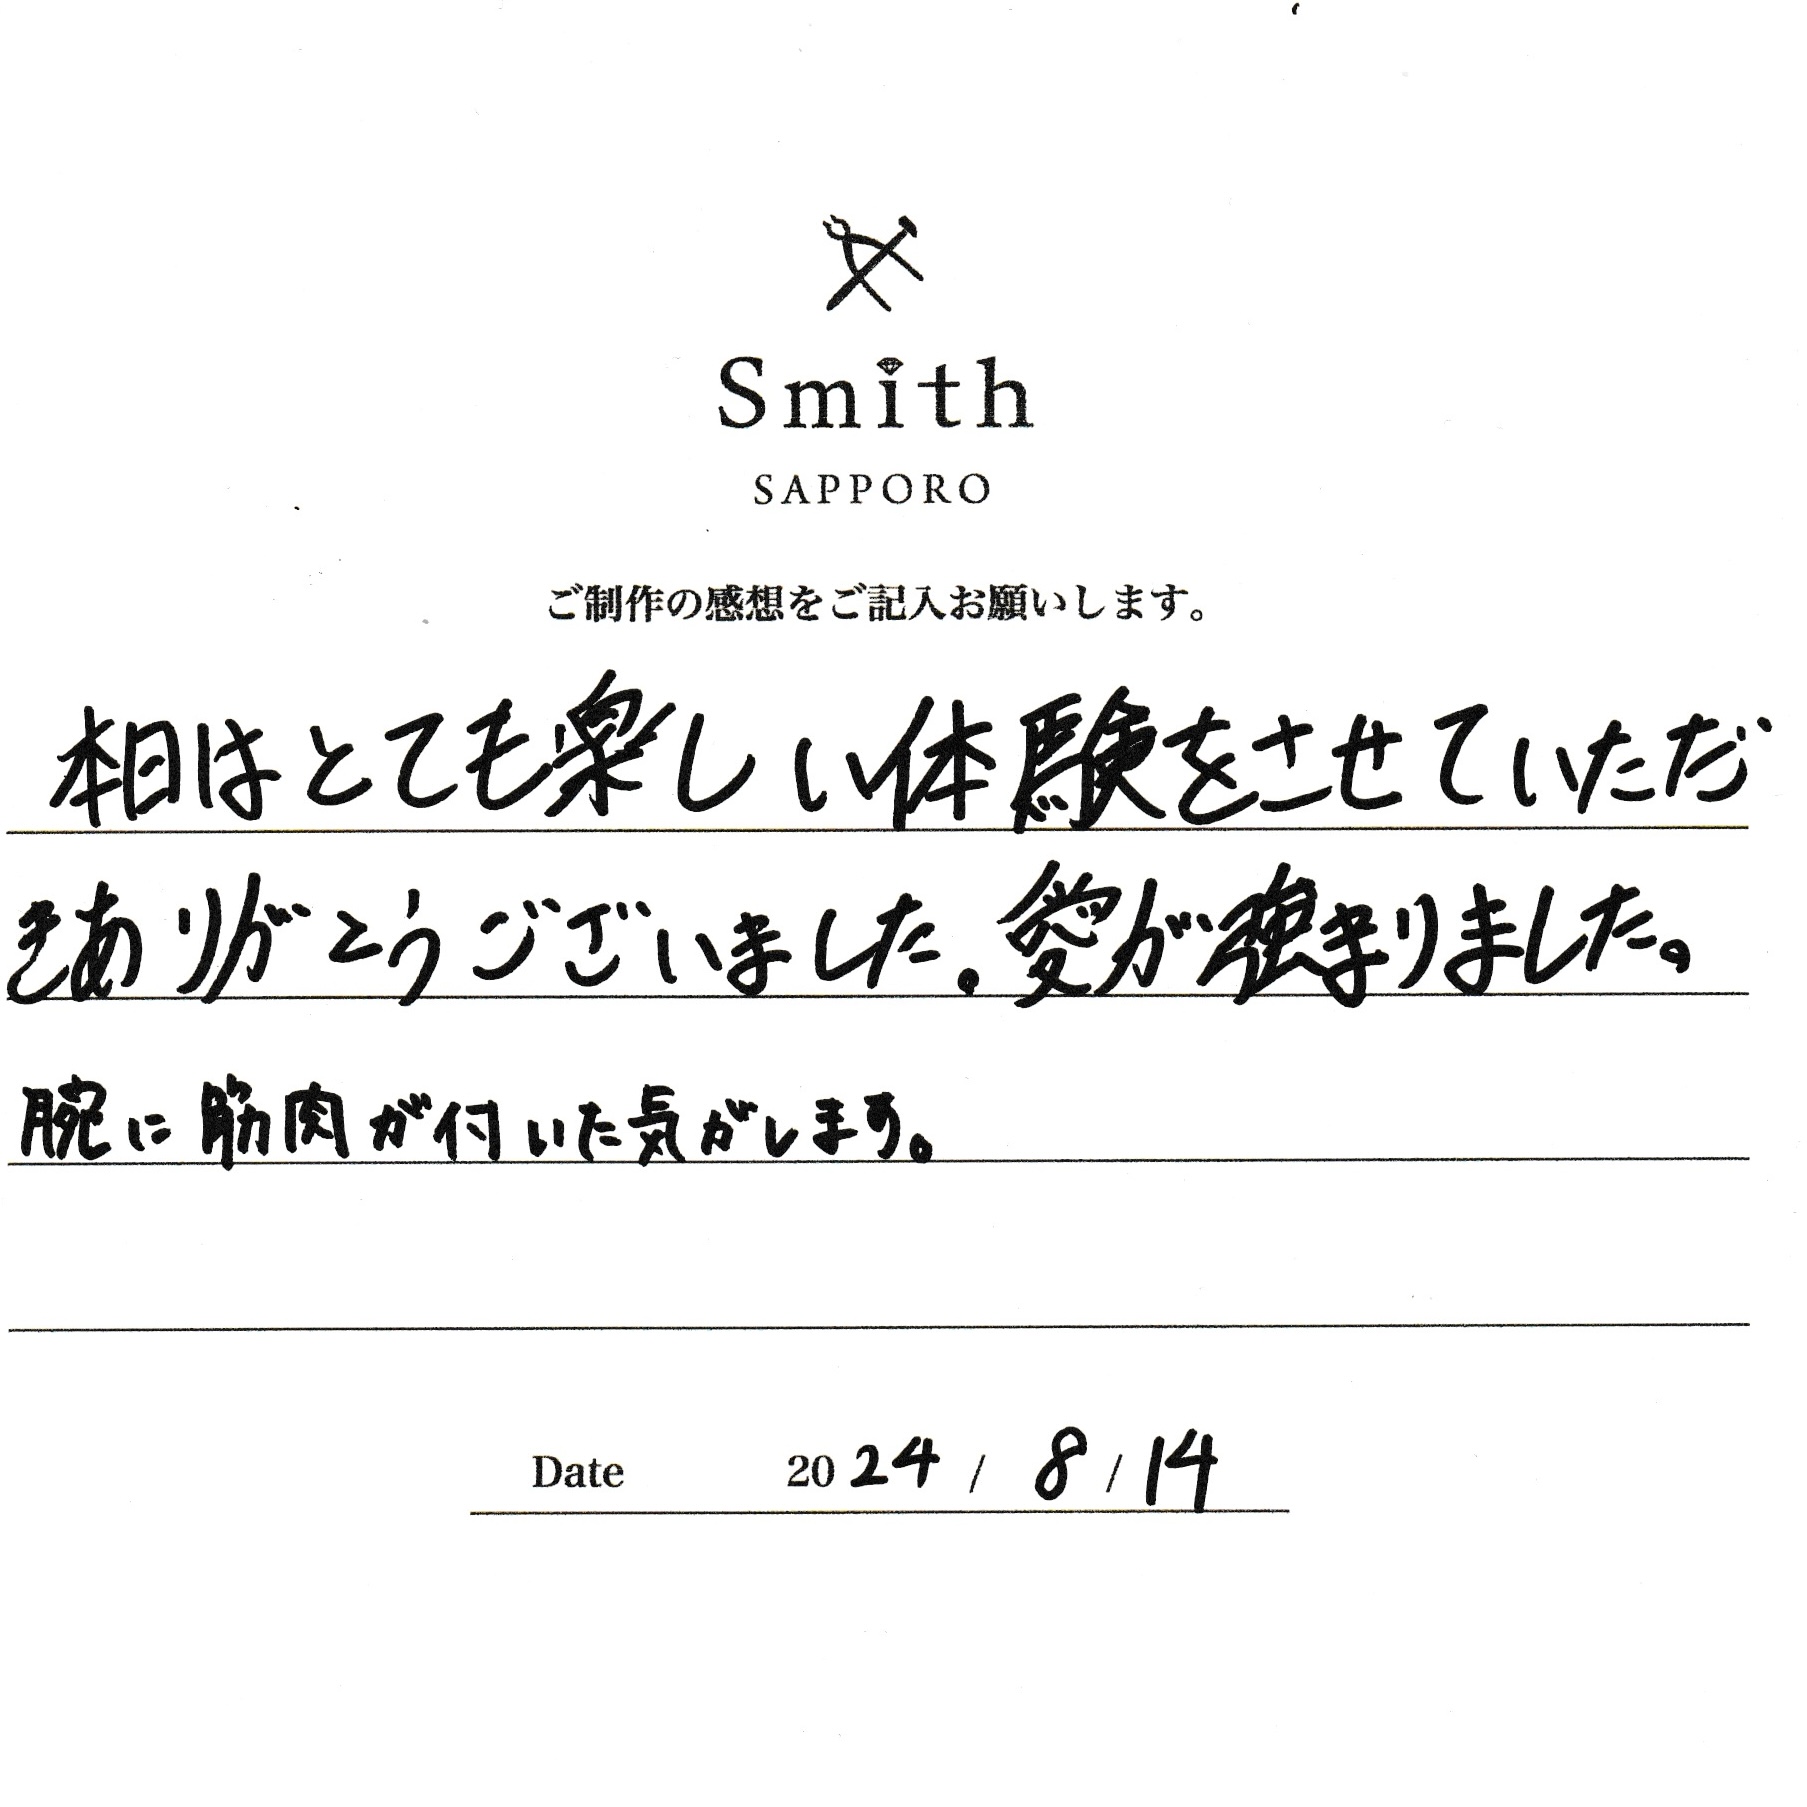 Smith
SAPPORO
ご制作の感想をご記入お願いします。
本日はとても楽しい体験をさせていただ
きありがとうございました。愛が強まりました。
腕に筋肉が付いた気がします。
Date 2024 / 8 / 14